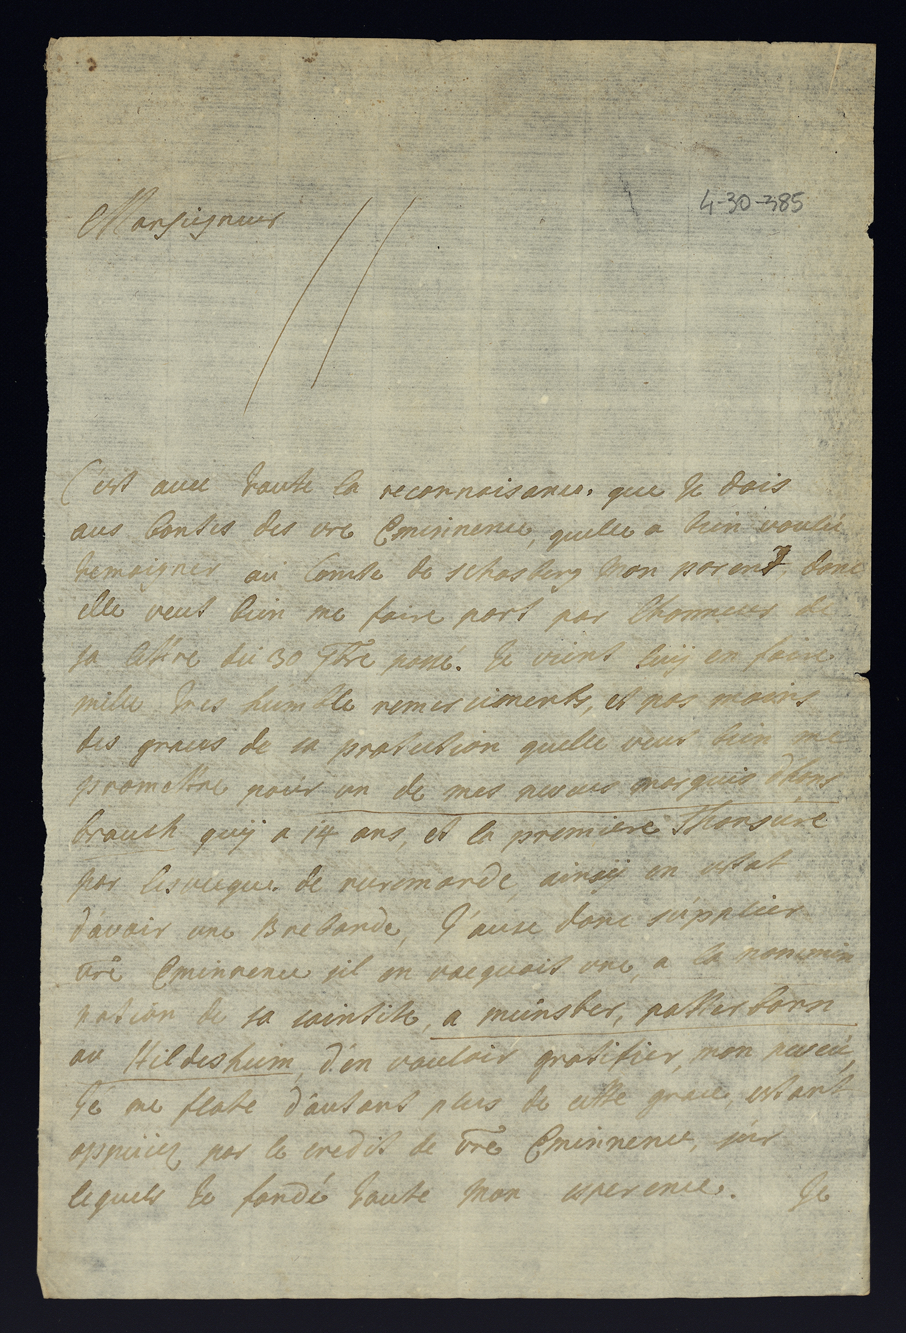 Monsigneur
4-30-385
C'est avec toute la reconnoisance. que Je dois
aus bontes des vre Eminnence, quelle a bien voulu
temoigner au Comte de schasberg mon parent donc
elle veut bien me faire part par lhonneur de
sa lettre du 30 9bre passé. Je vient luÿ en faire
mille tres humble remerciments, et pas moins
des graces de sa protection quelle veut bien me
promettre pour un de mes neveus marquis d'hons
brouck quÿ a 14 ans, et la premiere Thonsure
par lesveque. de ruremonde, ainsÿ en estat
d'avoir une Brebande, J'ause donc supplier
vre Eminnence sil en vacquoit une, a la nommin
nation de sa saintité, a münster, patterborn
ou Hildesheim, d'en vouloir gratifier, mon neveu,
Je me flate d'autant plus de cette grace, estant
appuiez par le credit de vre Eminnence, sur
lequels Je fondé toute mon esperence. Je